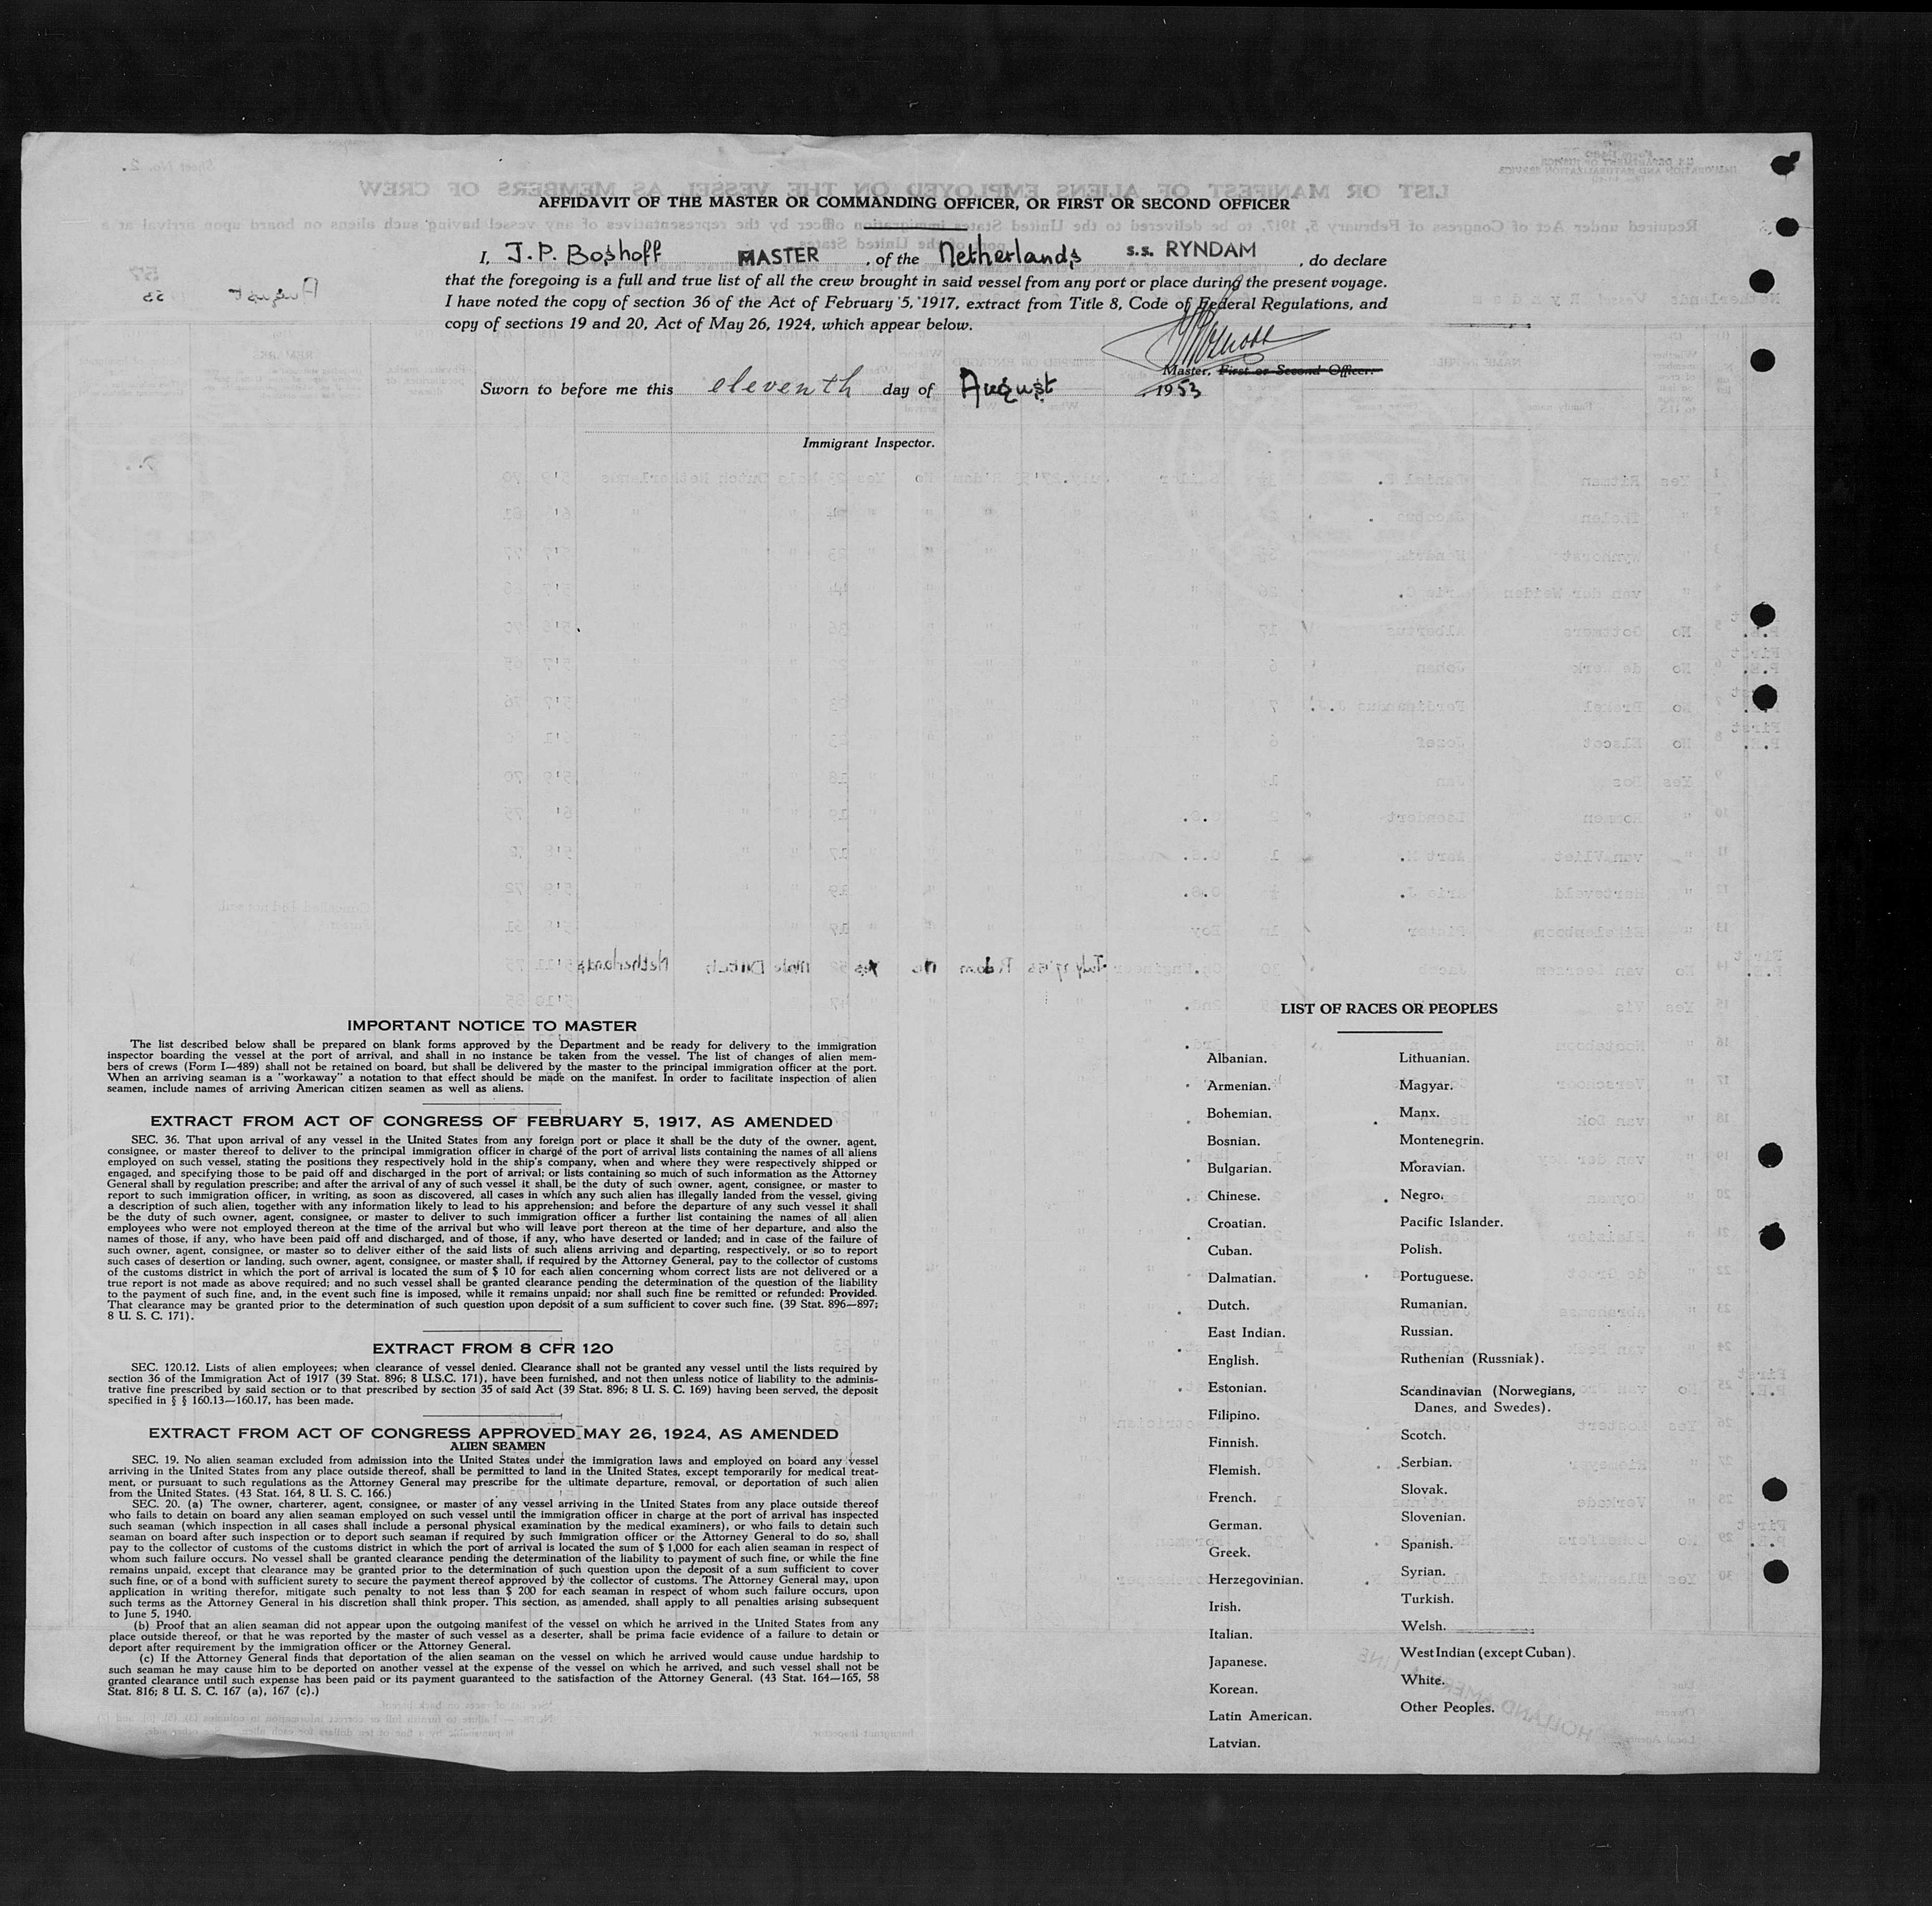 AFFIDAVIT OF THE MASTER OR COMMANDING OFFICER, OR FIRST OR SECOND OFFICER
I, J.P. Boshoff MASTER, of the Netherlands s.s. RYNDAM, do declare
that the foregoing is a full and true list of all the crew brought in said vessel from any port or place during the present voyage.
I have noted the copy of section 36 of the Act of February 5, 1917, extract from Title 8, Code of Federal Regulations, and
copy of sections 19 and 20, Act of May 26, 1924, which appear below.
Master, First or Second Officer.
Sworn to before me this eleventh day of August, 1953
Immigrant Inspector.
IMPORTANT NOTICE TO MASTER
The list described below shall be prepared on blank forms approved by the Department and be ready for delivery to the immigration
inspector boarding the vessel at the port of arrival, and shall in no instance be taken from the vessel. The list of changes of alien mem-
bers of crews (Form I—489) shall not be retained on board, but shall be delivered by the master to the principal immigration officer at the port.
When an arriving seaman is a "workaway" a notation to that effect should be made on the manifest. In order to facilitate inspection of alien
seamen, include names of arriving American citizen seamen as well as aliens.
EXTRACT FROM ACT OF CONGRESS OF FEBRUARY 5, 1917, AS AMENDED
SEC. 36. That upon arrival of any vessel in the United States from any foreign port or place it shall be the duty of the owner, agent,
consignee, or master thereof to deliver to the principal immigration officer in charge of the port of arrival lists containing the names of all aliens
employed on such vessel, stating the positions they respectively hold in the ship's company, when and where they were respectively shipped or
engaged, and specifying those to be paid off and discharged in the port of arrival; or lists containing so much of such information as the Attorney
General shall by regulation prescribe; and after the arrival of any of such vessel it shall be the duty of such owner, agent, consignee, or master to
report to such immigration officer, in writing, as soon as discovered, all cases in which any such alien has illegally landed from the vessel, giving
a description of such alien, together with any information likely to lead to his apprehension; and before the departure of any such vessel it shall
be the duty of such owner, agent, consignee, or master to deliver to such immigration officer a further list containing the names of all alien
employees who were not employed thereon at the time of the arrival but who will leave port thereon at the time of her departure, and also the
names of those, if any, who have been paid off and discharged, and of those, if any, who have deserted or landed; and in case of the failure of
such owner, agent, consignee, or master so to deliver either of the said lists of such aliens arriving and departing, respectively, or so to report
such cases of desertion or landing, such owner, agent, consignee, or master shall, if required by the Attorney General, pay to the collector of customs
of the customs district in which the port of arrival is located the sum of $ 10 for each alien concerning whom correct lists are not delivered or a
true report is not made as above required; and no such vessel shall be granted clearance pending the determination of the question of the liability
to the payment of such fine, and, in the event such fine is imposed, while it remains unpaid; nor shall such fine be remitted or refunded: Provided.
That clearance may be granted prior to the determination of such question upon deposit of a sum sufficient to cover such fine. (39 Stat. 896—897;
8 U. S. C. 171).
EXTRACT FROM 8 CFR 120
SEC. 120.12. Lists of alien employees; when clearance of vessel denied. Clearance shall not be granted any vessel until the lists required by
section 36 of the Immigration Act of 1917 (39 Stat. 896; 8 U.S.C. 171), have been furnished, and not then unless notice of liability to the adminis-
trative fine prescribed by said section or to that prescribed by section 35 of said Act (39 Stat. 896; 8 U. S. C. 169) having been served, the deposit
specified in § § 160.13—160.17, has been made.
EXTRACT FROM ACT OF CONGRESS APPROVED MAY 26, 1924, AS AMENDED
ALIEN SEAMEN
SEC. 19. No alien seaman excluded from admission into the United States under the immigration laws and employed on board any vessel
arriving in the United States from any place outside thereof, shall be permitted to land in the United States, except temporarily for medical treat-
ment, or pursuant to such regulations as the Attorney General may prescribe for the ultimate departure, removal, or deportation of such alien
from the United States. (43 Stat. 164, 8 U. S. C. 166.)
SEC. 20. (a) The owner, charterer, agent, consignee, or master of any vessel arriving in the United States from any place outside thereof
who fails to detain on board any alien seaman employed on such vessel until the immigration officer in charge at the port of arrival has inspected
such seaman (which inspection in all cases shall include a personal physical examination by the medical examiners), or who fails to detain such
seaman on board after such inspection or to deport such seaman if required by such immigration officer or the Attorney General to do so, shall
pay to the collector of customs of the customs district in which the port of arrival is located the sum of $ 1,000 for each alien seaman in respect of
whom such failure occurs. No vessel shall be granted clearance pending the determination of the liability to payment of such fine, or while the fine
remains unpaid, except that clearance may be granted prior to the determination of such question upon the deposit of a sum sufficient to cover
such fine, or of a bond with sufficient surety to secure the payment thereof approved by the collector of customs. The Attorney General may, upon
application in writing therefor, mitigate such penalty to not less than $ 200 for each seaman in respect of whom such failure occurs, upon
such terms as the Attorney General in his discretion shall think proper. This section, as amended, shall apply to all penalties arising subsequent
to June 5, 1940.
(b) Proof that an alien seaman did not appear upon the outgoing manifest of the vessel on which he arrived in the United States from any
place outside thereof, or that he was reported by the master of such vessel as a deserter, shall be prima facie evidence of a failure to detain or
deport after requirement by the immigration officer or the Attorney General.
(c) If the Attorney General finds that deportation of the alien seaman on the vessel on which he arrived would cause undue hardship to
such seaman he may cause him to be deported on another vessel at the expense of the vessel on which he arrived, and such vessel shall not be
granted clearance until such expense has been paid or its payment guaranteed to the satisfaction of the Attorney General. (43 Stat. 164—165, 58
Stat. 816; 8 U. S. C. 167 (a), 167 (c).)
LIST OF RACES OR PEOPLES
Albanian.
Armenian.
Bohemian.
Bosnian.
Bulgarian.
Chinese.
Croatian.
Cuban.
Dalmatian.
Dutch.
East Indian.
English.
Estonian.
Filipino.
Finnish.
Flemish.
French.
German.
Greek.
Herzegovinian.
Irish.
Italian.
Japanese.
Korean.
Latin American.
Latvian.
Lithuanian.
Magyar.
Manx.
Montenegrin.
Moravian.
Negro.
Pacific Islander.
Polish.
Portuguese.
Rumanian.
Russian.
Ruthenian (Russniak).
Scandinavian (Norwegians,
Danes, and Swedes).
Scotch.
Serbian.
Slovak.
Slovenian.
Spanish.
Syrian.
Turkish.
Welsh.
West Indian (except Cuban).
White.
Other Peoples.